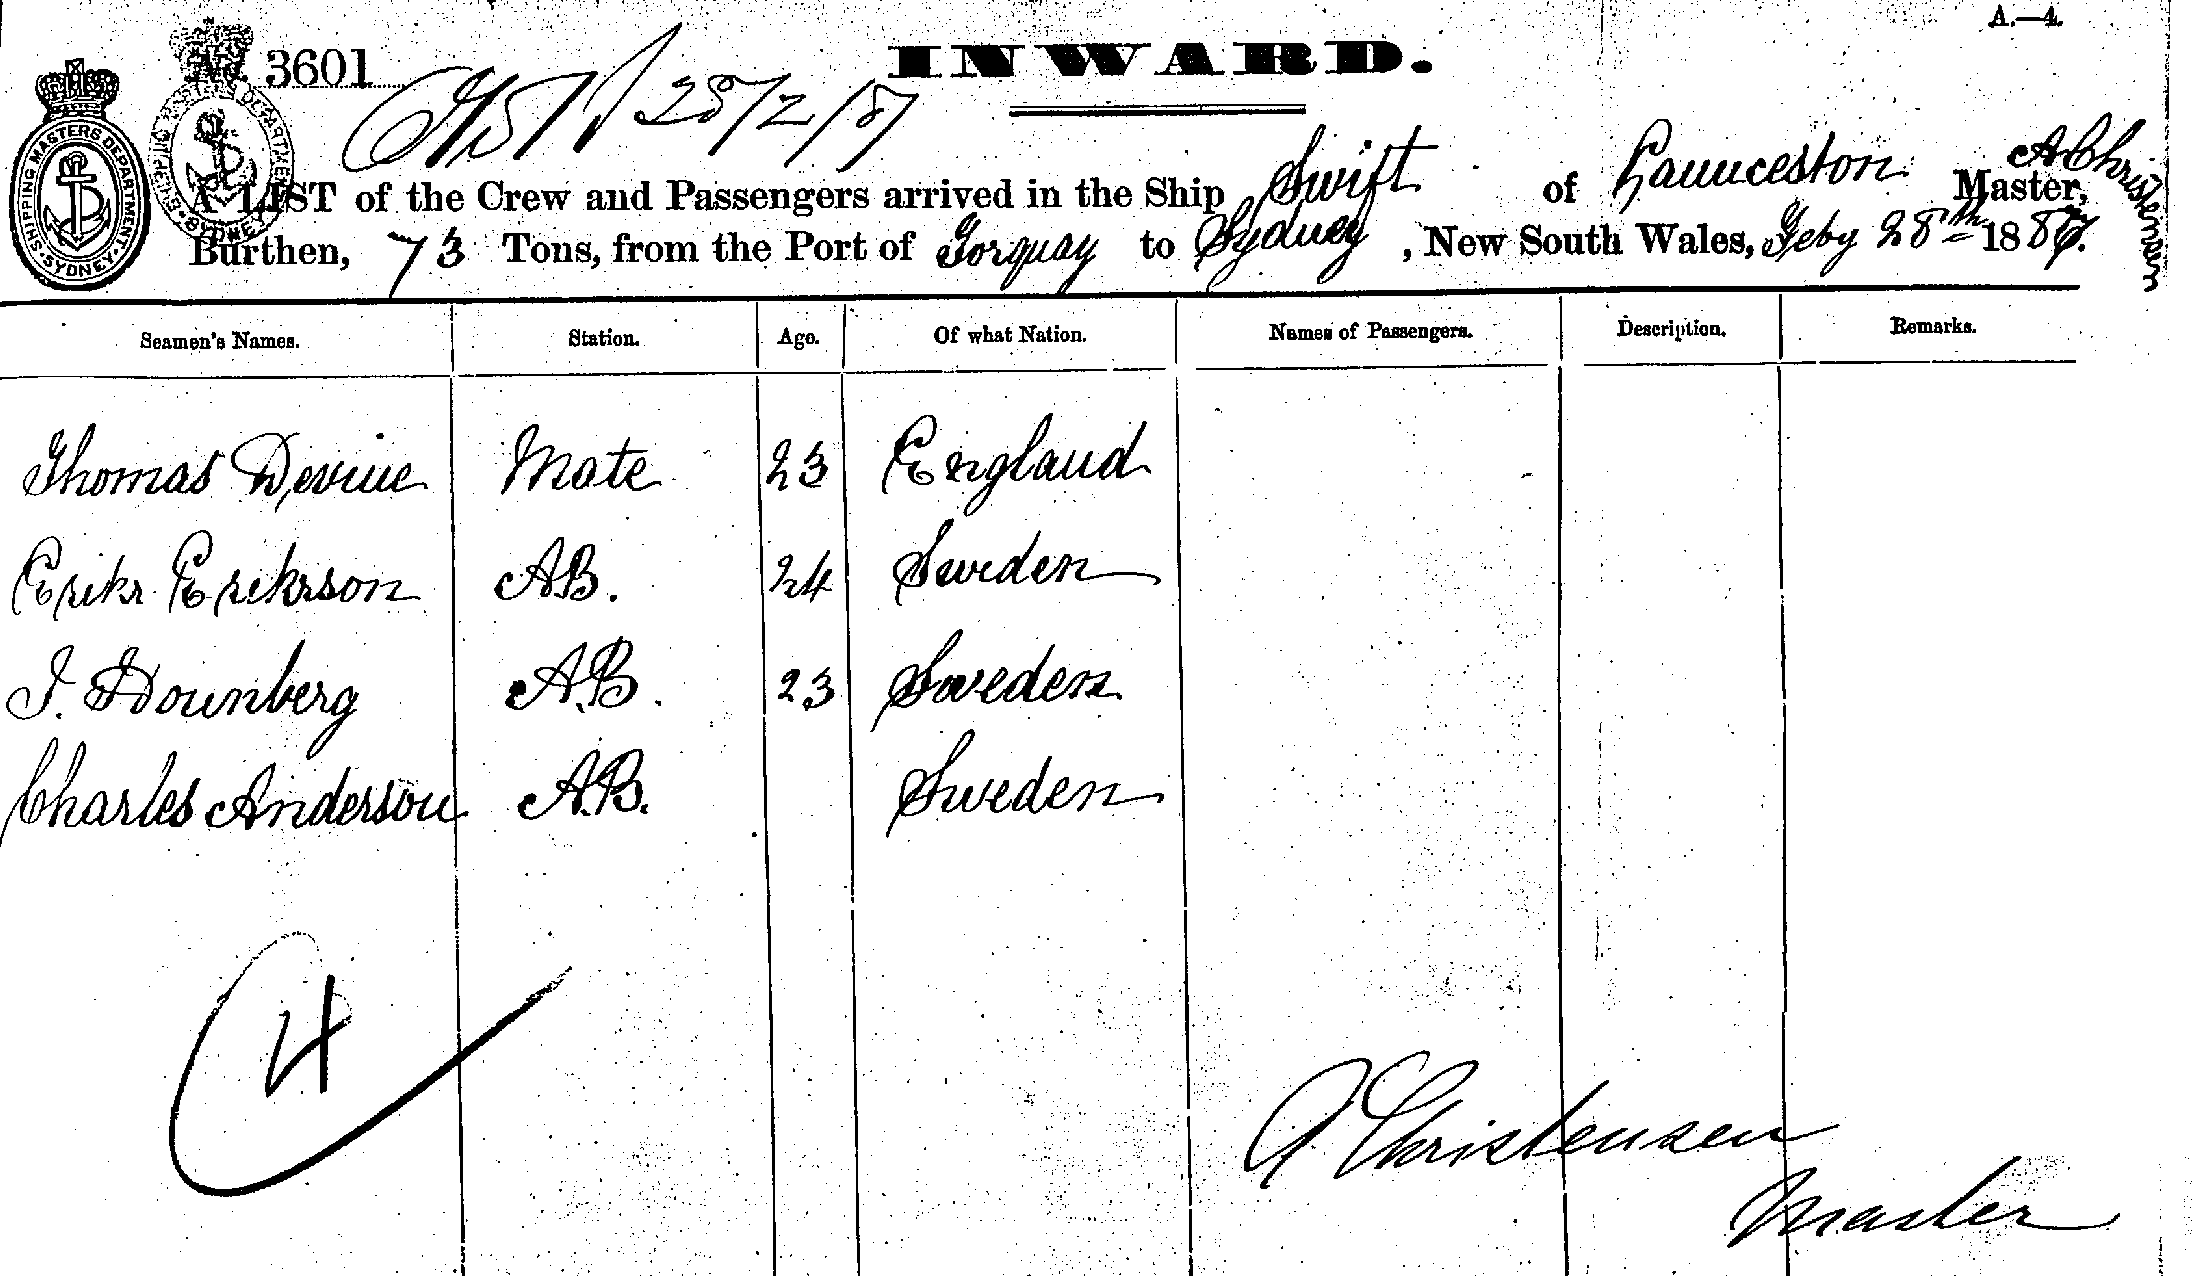 A.—4.
No. 3601
INWARD.
28/2/87
SHIPPING MASTERS DEPARTMENT · SYDNEY ·
SHIPPING MASTERS DEPARTMENT · SYDNEY ·
A LIST of the Crew and Passengers arrived in the Ship Swift of Launceston A Christensen Master,
Burthen, 73 Tons, from the Port of Torquay to Sydney, New South Wales, Feby 28th 1887.
Seamen's Names. Station. Age. Of what Nation. Names of Passengers. Description. Remarks.
Thomas Devine Mate 23 England
Erikr Erikrson AB. 24 Sweden
J. A.B. 23 Sweden
Charles Anderson A.B. Sweden
4
A Christensen
Master